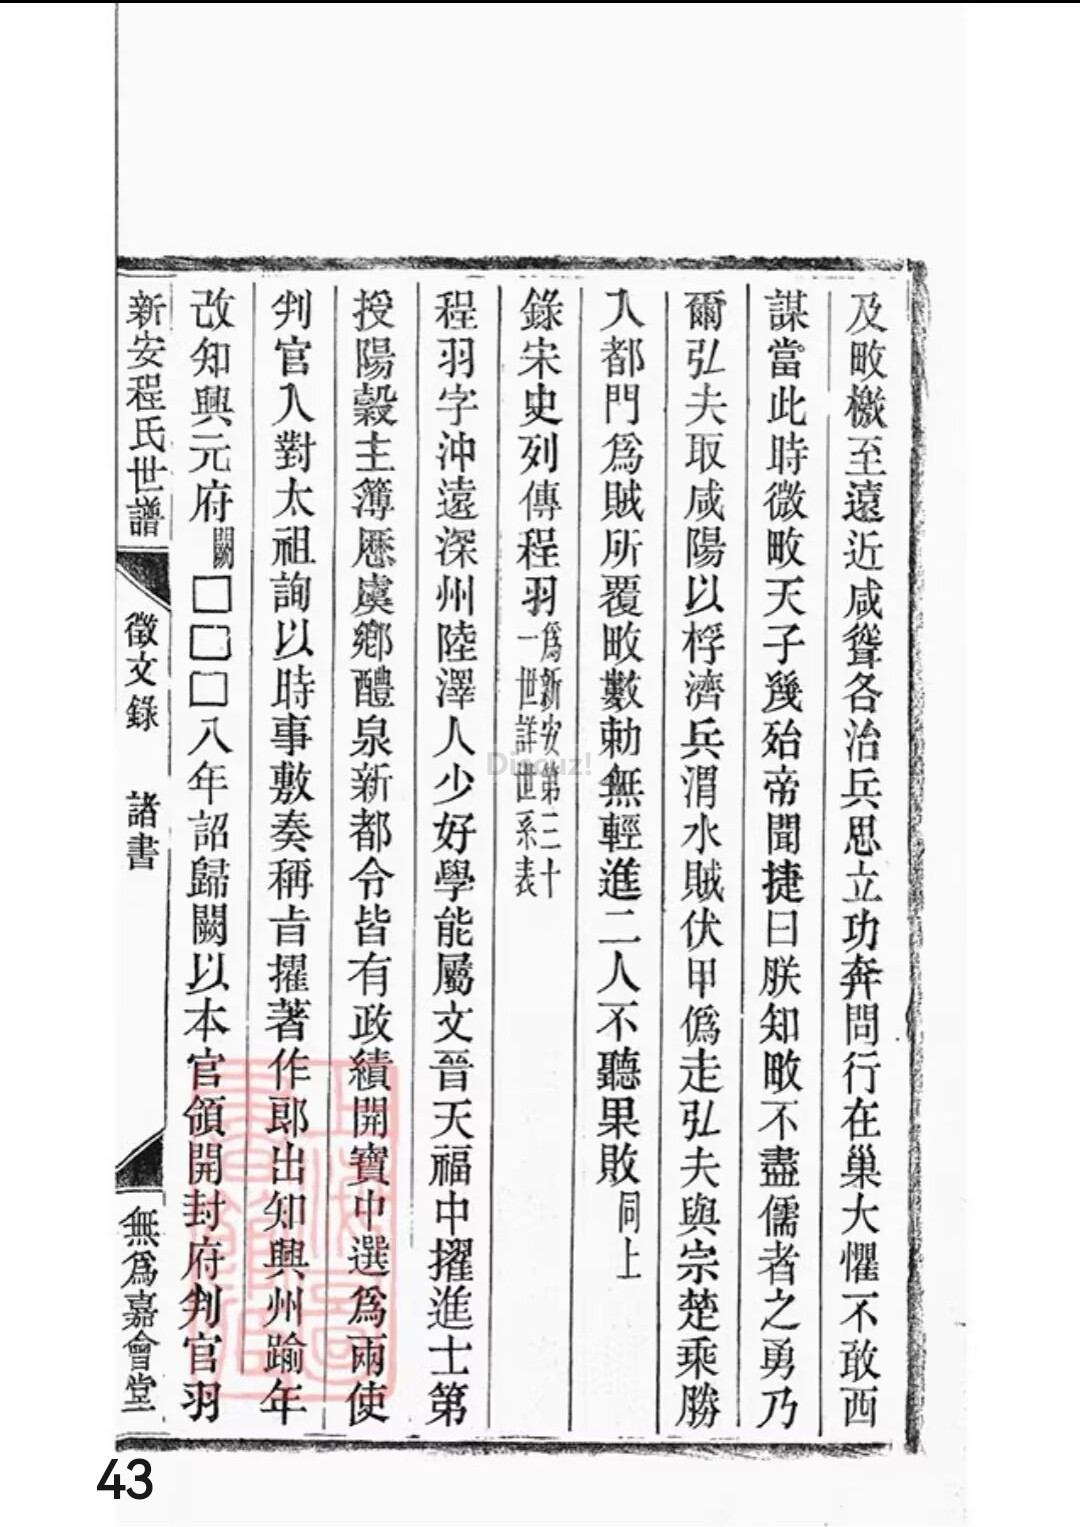 及畋檄至遠近咸聳各治兵思立功奔問行在巢大懼不敢西
謀當此時微畋天子幾殆帝聞捷曰朕知畋不盡儒者之勇乃
爾弘夫取咸陽以桴濟兵渭水賊伏甲僞走弘夫與宗楚乘勝
入都門爲賊所覆畋數勅無輕進二人不聽果敗同上
錄宋史列傳程羽爲新安第三十一世詳世系表
程羽字沖遠深州陸澤人少好學能屬文晉天福中擢進士第
授陽穀主簿歷虞鄉醴泉新都令皆有政績開寶中選爲兩使
判官入對太祖詢以時事敷奏稱旨擢著作郎出知興州踰年
改知興元府闕□□□八年詔歸闕以本官領開封府判官羽
新安程氏世譜 徵文錄 諸書 無爲嘉會堂
Discuz!
43